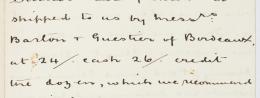 shipped to us by Messrs
Barton & Guestier of Bordeaux,
at 24/. cash 26/. credit
the dozen, which we recommend